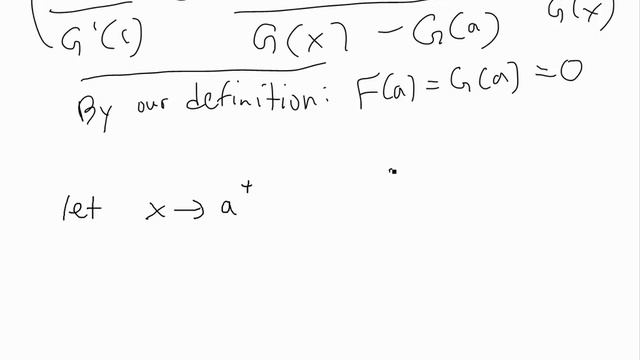 G'(c) G(x) - G(a) G(x)
By our definition: F(a) = G(a) = 0
let x → a⁺